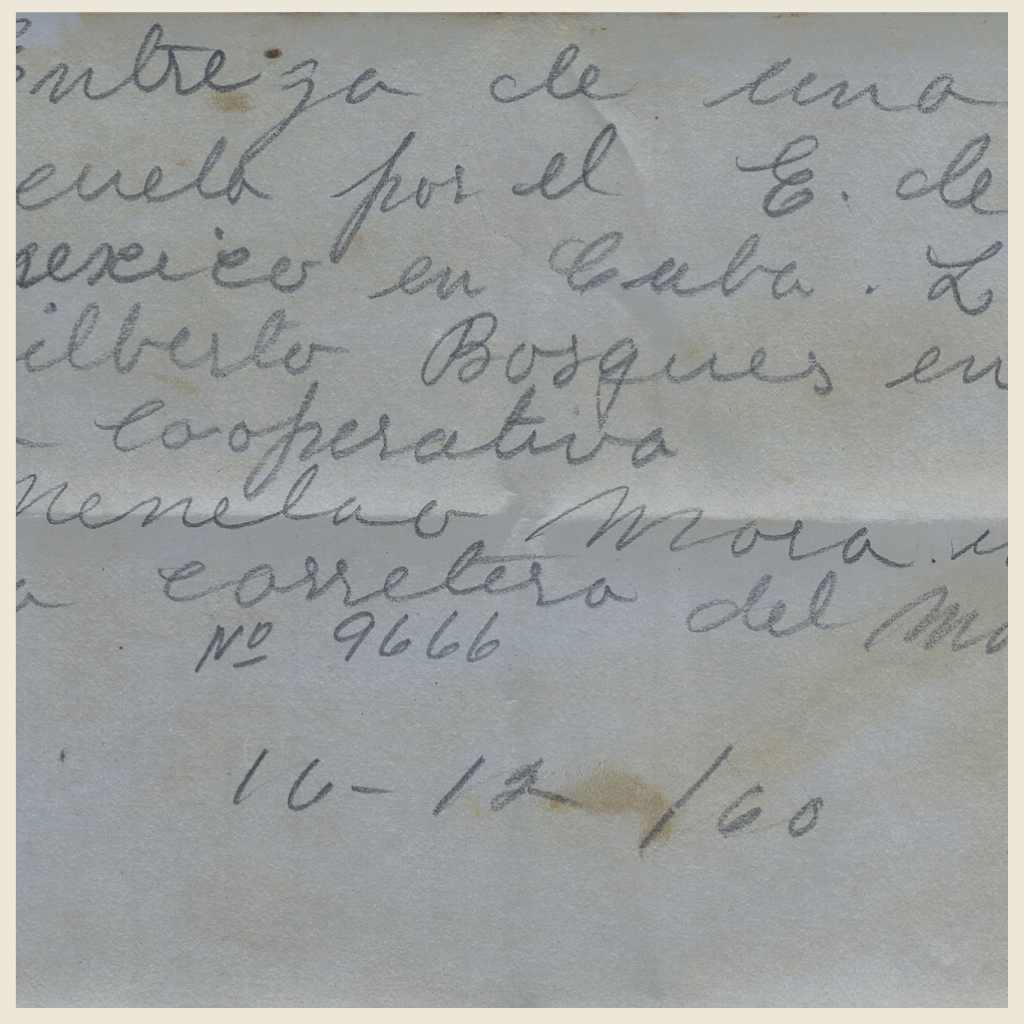 Entrega de una
cuela por el E. de
mexico en Cuba. L
ilberto Bosques en
Cooperativa
Menelao Mora
a carretera del Ma
Nº 9666
16-12/60